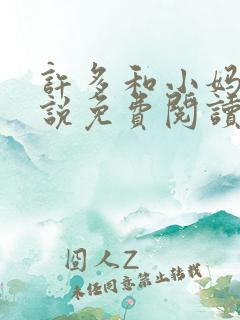 許多和小妈
説免費閱讀
囧人Z
未经同意禁止转载